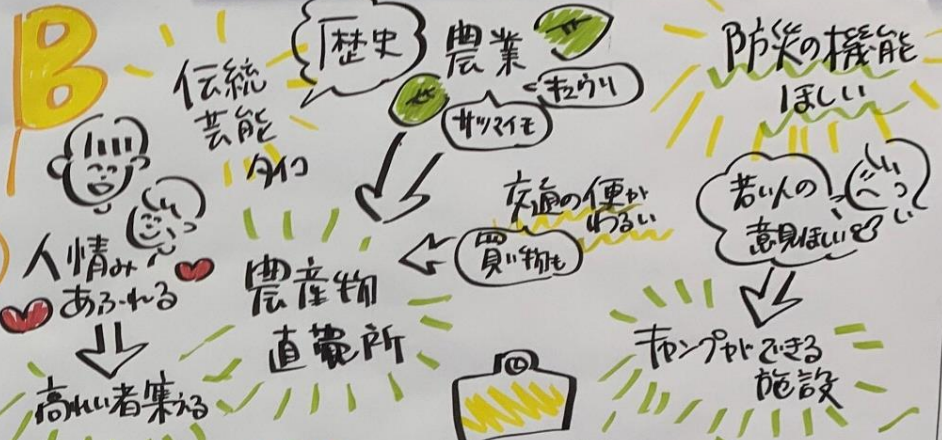 B
伝統
芸能
タイコ
歴史
農業
キュウリ
サツマイモ
防災の機能
ほしい
人情み
あふれる
高れい者集える
交通の便が
わるい
買い物も
農産物
直売所
若い人の
意見ほしい
キャンプができる
施設